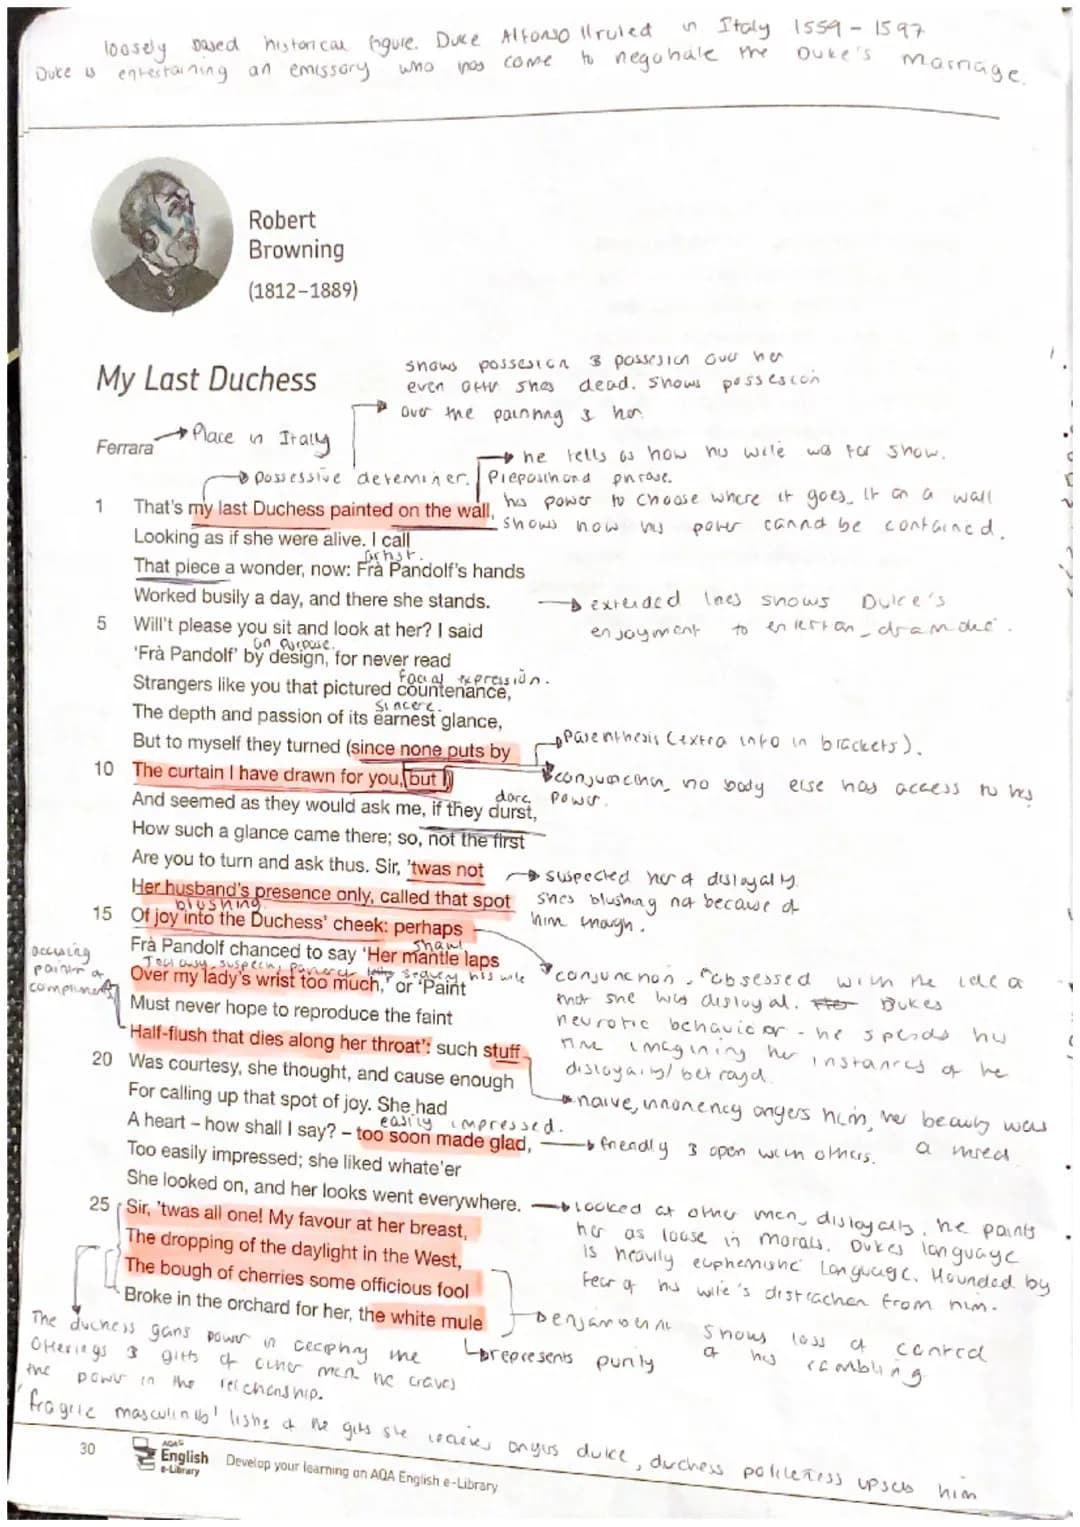 loosely based historical figure. Duke Alfonso II ruled in Italy 1559 - 1597
Duke is entertaining an emissary who has come to negotiate the Duke's marriage.
Robert
Browning
(1812–1889)
My Last Duchess
shows possesion & possesion over her
even after shes dead. shows possesion
over the painting & her
Ferrara
Place in Italy
he tells us how his wife was for show.
possessive determiner.
Preposition phrase.
his power to choose where it goes. It on a wall
shows how his power cannot be contained.
1 That's my last Duchess painted on the wall,
Looking as if she were alive. I call
artist.
That piece a wonder, now: Frà Pandolf's hands
Worked busily a day, and there she stands.
extended lines shows Duke's
enjoyment to entertain
5 Will't please you sit and look at her? I said
on purpose.
'Frà Pandolf' by design, for never read
facial expression.
Strangers like you that pictured countenance,
sincere.
The depth and passion of its earnest glance,
But to myself they turned (since none puts by
Parenthesis (extra info in brackets).
10 The curtain I have drawn for you, but I)
conjunction, no body else has access to his
power.
dare
And seemed as they would ask me, if they durst,
How such a glance came there; so, not the first
Are you to turn and ask thus. Sir, 'twas not
suspected her of disloyalty.
Her husband's presence only, called that spot
shes blushing not because of
him though.
blushing
15 Of joy into the Duchess' cheek: perhaps
shawl
Frà Pandolf chanced to say 'Her mantle laps
accusing
painter of
compliments
his wife
Over my lady's wrist too much,' or 'Paint
Must never hope to reproduce the faint
Half-flush that dies along her throat': such stuff
conjunction, obsessed with the idea
that she was disloyal. Dukes
neurotic behavior - he spends his
time imagining her instances of he
disloyalty/ betrayal.
20 Was courtesy, she thought, and cause enough
For calling up that spot of joy. She had
naive, innonency angers him, her beauty was
easily impressed.
A heart – how shall I say? – too soon made glad,
friendly & open with others.
Too easily impressed; she liked whate'er
She looked on, and her looks went everywhere.
looked at other men, disloyalty, he paints
her as loose in morals. Dukes language
is heavily euphemistic language. Hounded by
fear of his wife's distraction from him.
25 Sir, 'twas all one! My favour at her breast,
The dropping of the daylight in the West,
The bough of cherries some officious fool
Broke in the orchard for her, the white mule
enjambment shows loss of control
of his rambling
represents purity
The duchess gains power in accepting the
offerings & gifts of other men he craves
the power in the relationship.
'fragile masculinity' lists of the gifts she recieves angers duke, duchess politeness upsets him
30
AQA
English
e-Library
Develop your learning on AQA English e-Library